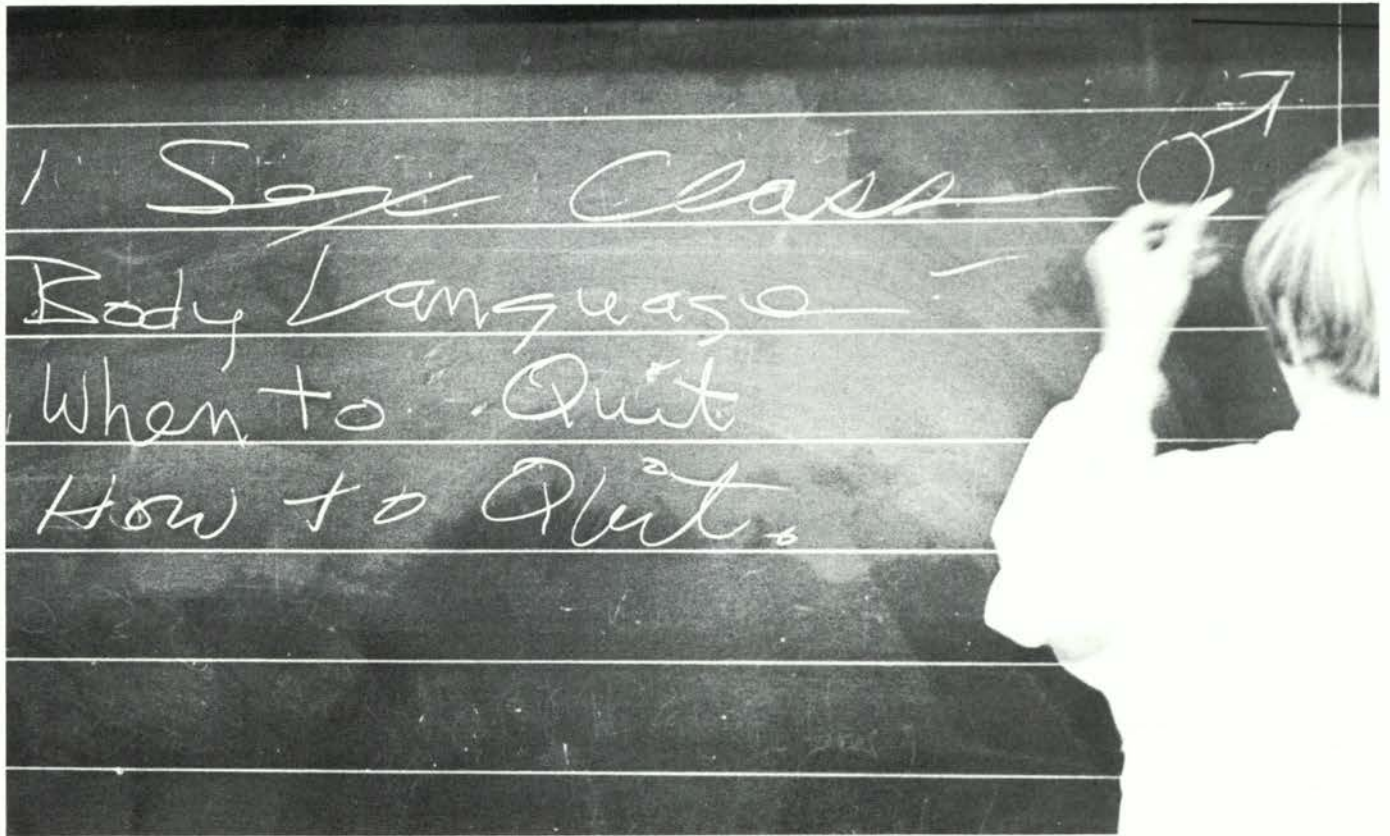 1 Sex Class ♂
Body Language
When to Quit
How to Quit.